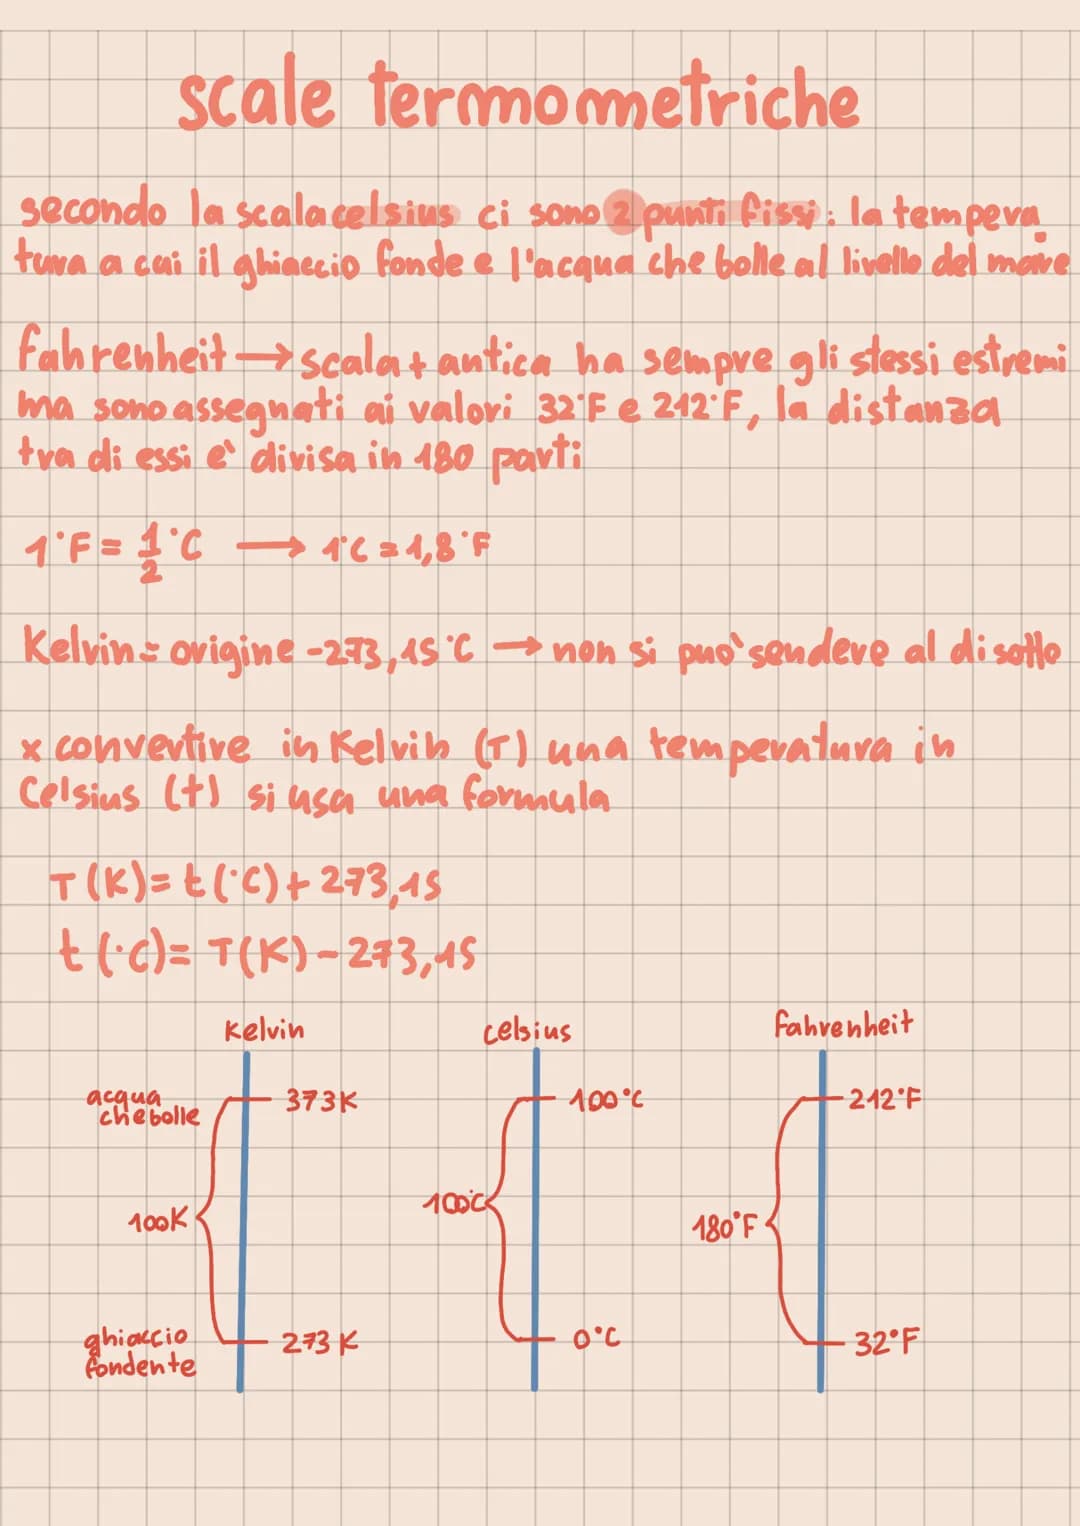 scale termometriche
secondo la scala celsius ci sono 2 punti fissi: la tempera
tura a cui il ghiaccio fonde e l'acqua che bolle al livello del mare
fahrenheit → scala + antica ha sempre gli stessi estremi
ma sono assegnati ai valori 32°F e 212°F, la distanza
tra di essi e' divisa in 180 parti
1°F = 1/2 °C → 1°C = 1,8°F
Kelvin = origine -273,15°C → non si puo' sendere al di sotto
x convertire in Kelvin (T) una temperatura in
Celsius (t) si usa una formula
T (K) = t (°C) + 273,15
t (°C) = T(K) - 273,15
Kelvin celsius fahrenheit
acqua
che bolle
373K 100°C 212°F
100K 100°C 180°F
ghiaccio
fondente
273 K 0°C 32°F